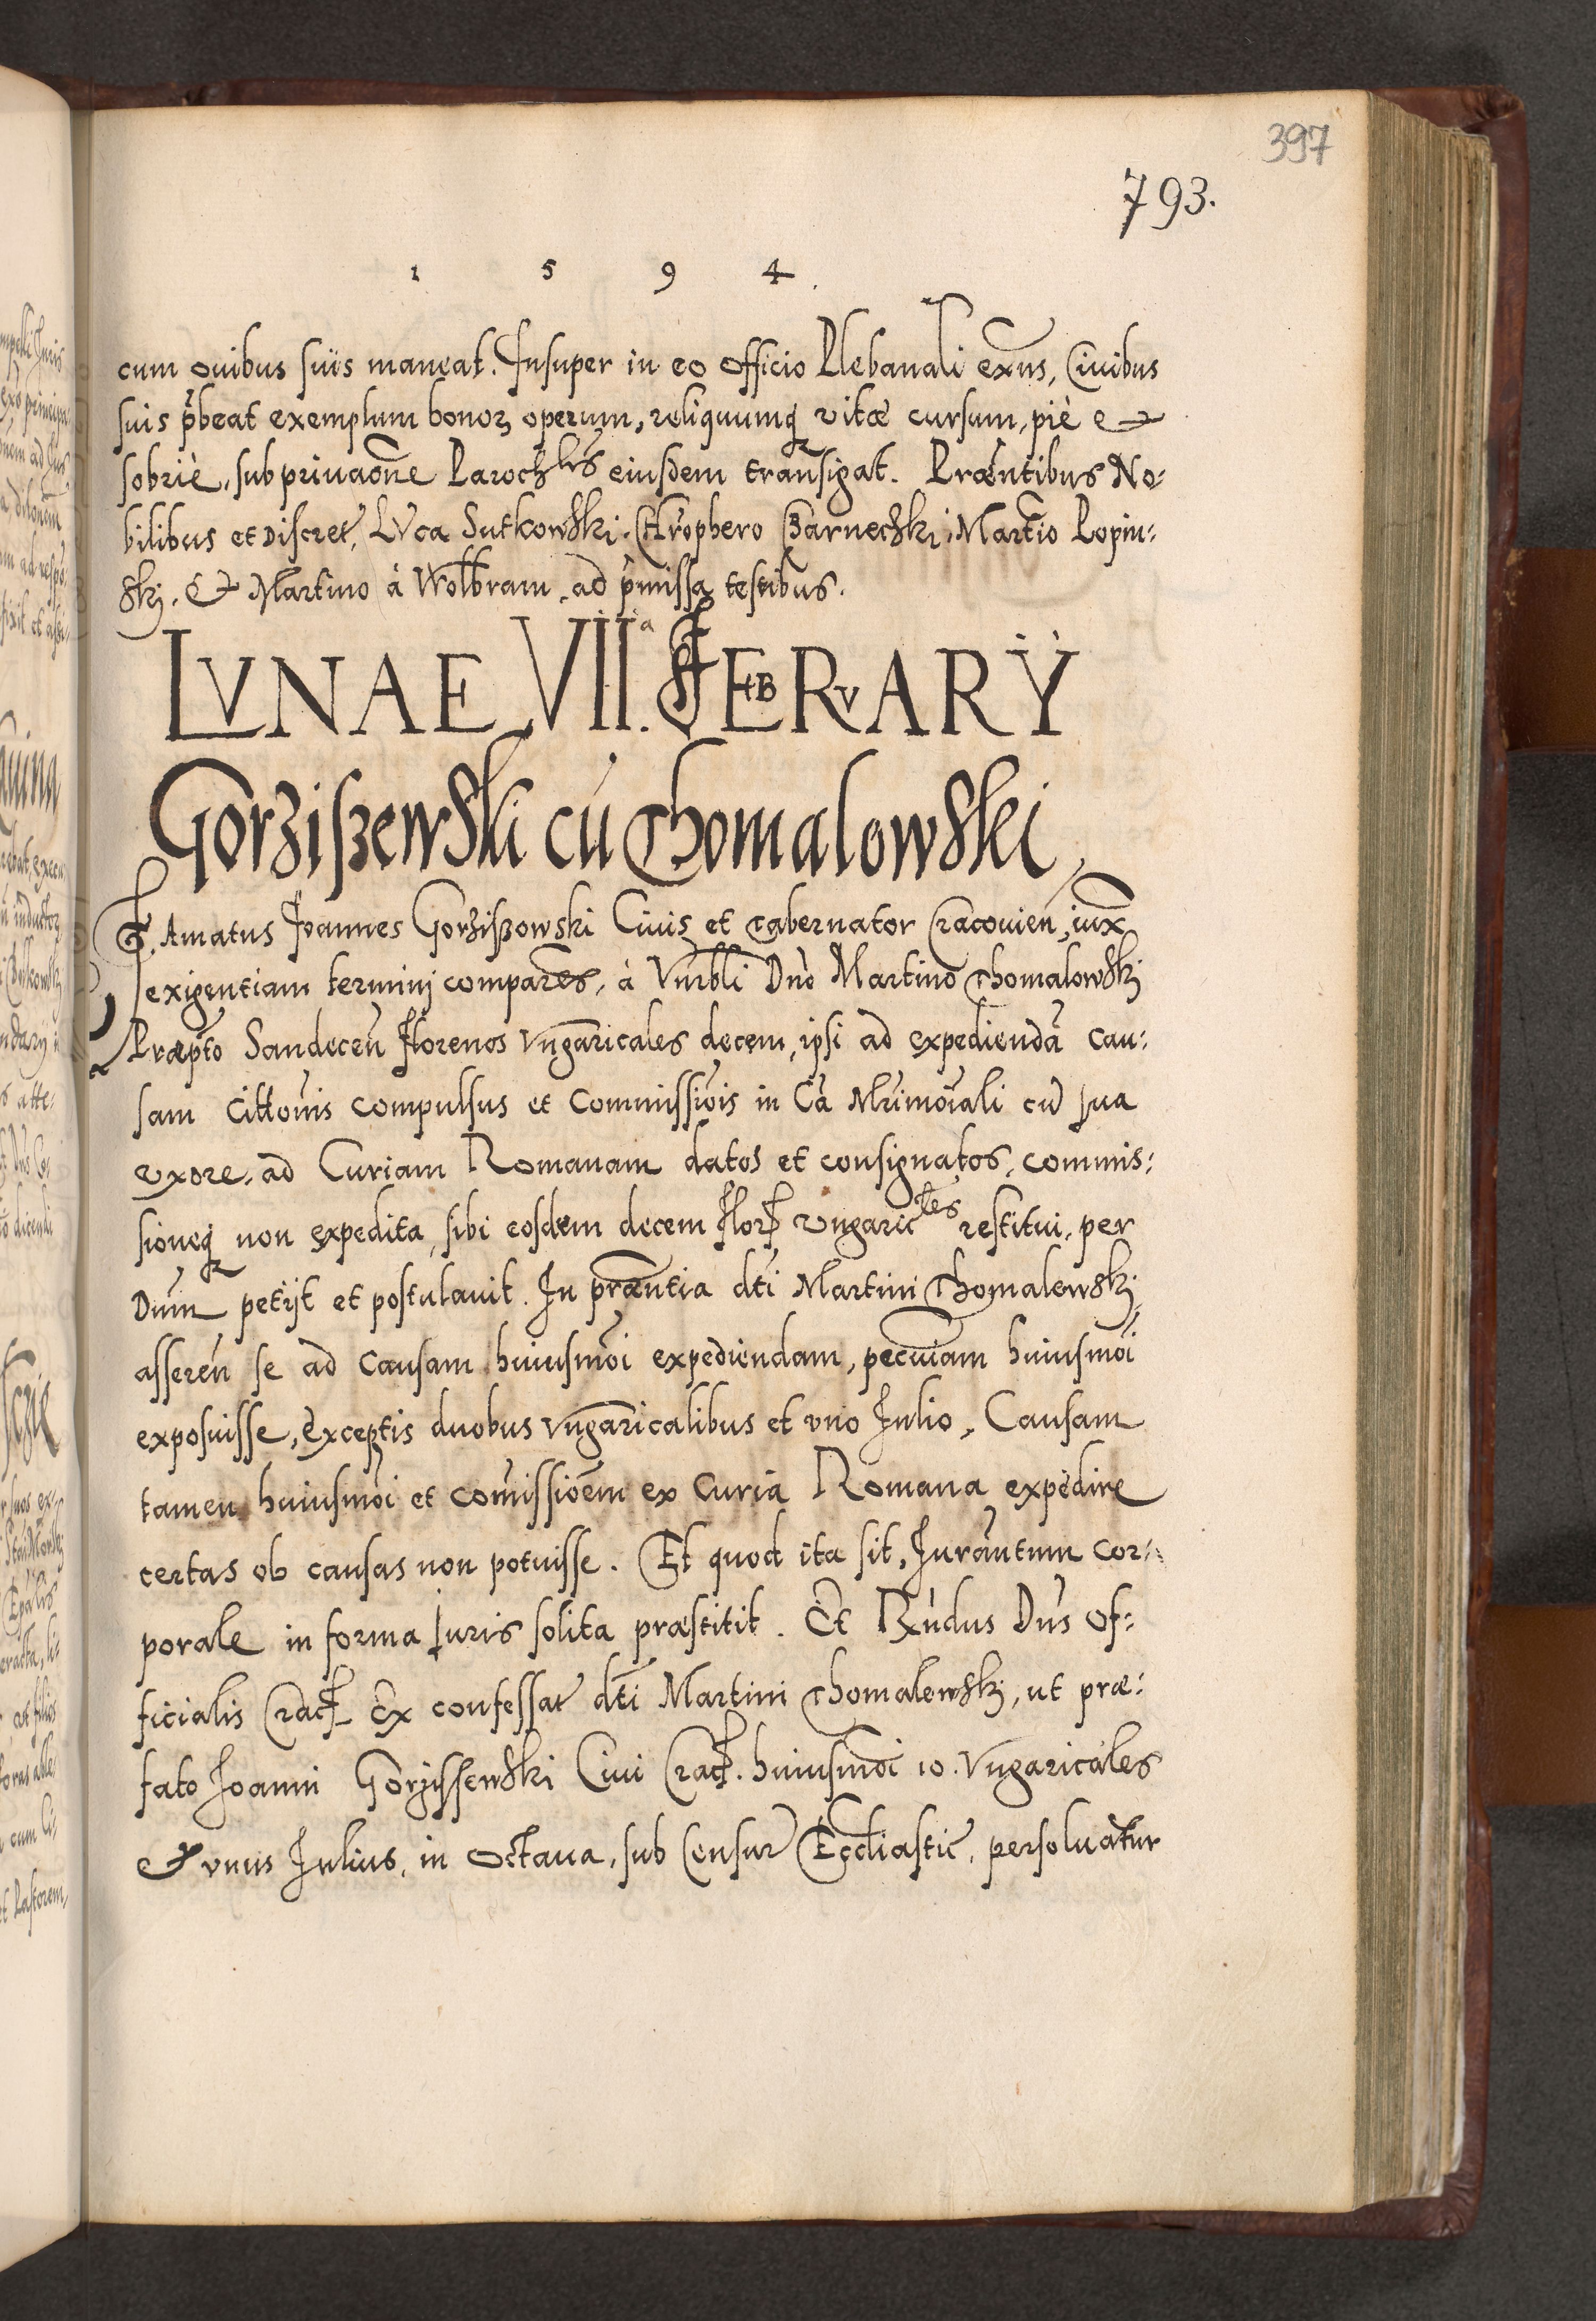 397
793.
1 5 9 4.
cum ouibus suis maneat. Insuper in eo officio Plebanali exñs, Ciuibus
suis p̃beat exemplum bonoꝝ operum, reliquumqꝫ vitæ cursum, piè et
sobriè, sub priuaõne Paroch̃lis eiusdem transigat. Præñtibus No:
bilibus et Discret̃, Lvca Sutkowski, Chr̃ophero Czarnechki, Martio Lopin:
ski, et Martino à Wolbram, ad p̃missa testibus.
LVNAE VII.ª FEBRVARŸ
Gorziszewski cũ Thomalowski
Famatus Joannes Gorziszowski Ciuis et tabernator Cracouien̄, iux̃
exigentiam terminj comparẽs, à Vn̄rbli Dn̄o Martino Thomalowskj
Præpt̃o Sandecen̄ Florenos vngaricales decem, ipsi ad expediendã cau:
sam Citt̃onis compulsus et Commissiõis in Cã Mr̃imõiali cũ sua
vxore, ad Curiam Romanam datos et consignatos, commis:
sioneqꝫ non expedita, sibi eosdem decem flor̃ vngaric̃les restitui, per
Dnũm petijt et postulauit. In præñtia dt̃i Martini Thomalewskj,
asseren̄ se ad causam huiusmõi expediendam, pecuniam huiusmõi
exposuisse, exceptis duobus vngaricalibus et vno Julio, Causam
tamen huiusmõi et com̃issiõem ex Curia Romana expedire
certas ob causas non potuisse. Et quod ita sit, Jurãntum cor:
porale in forma Juris solita præstitit. Et Rx̃ndus Dn̄s Of:
ficialis Crac̃ Ex confessat̃ dt̃i Martini Thomalewskj, ut præ:
fato Joanni Gorzissewski Ciui Crac̃. huiusmõi 10. Vngaricales
et vnus Julius, in octaua, sub Censur̃ Ecc̃liastic̃, persoluatur